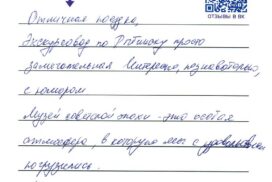 ОТЗЫВЫ В ВК
Отличная поездка,
Экскурсовод по Рыбинску просто
замечательная Интересно, познавательно,
с юмором
Музей советской эпохи - это особая
атмосфера, в которую мы с удовольствием
погрузились.